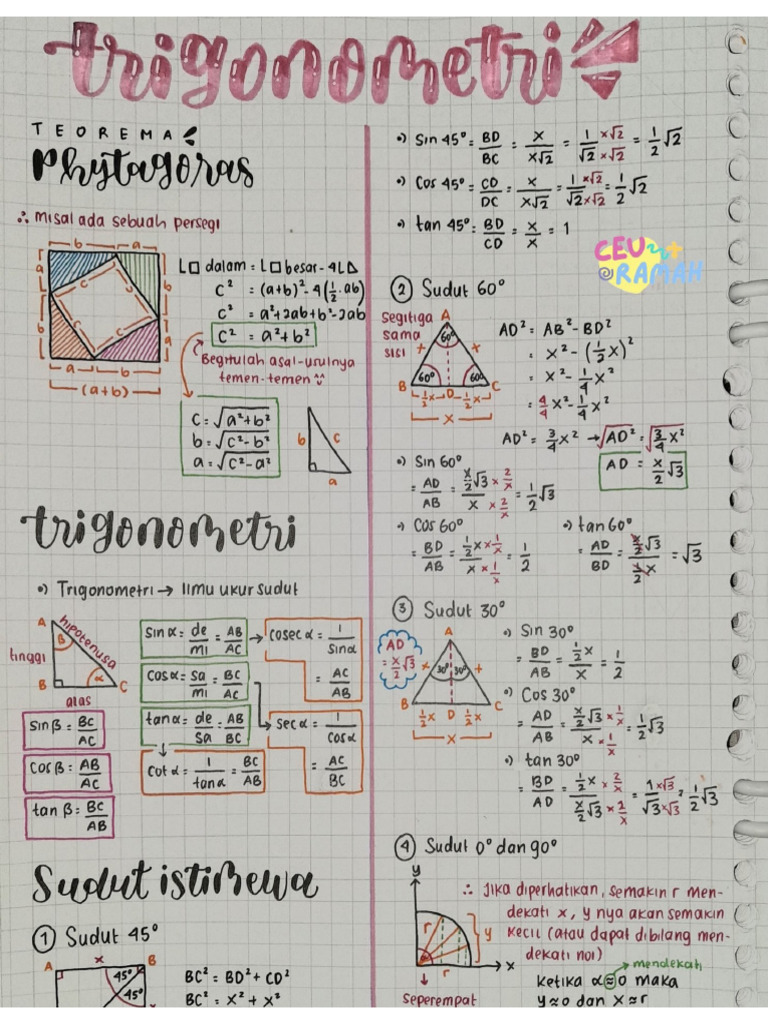 trigonometri
TEOREMA
Phytagoras
∴ misal ada sebuah persegi
b a
a b
b a
a b
c c c c
(a+b)
L□ dalam = L□ besar - 4L⊿
c² = (a+b)² - 4(½.ab)
c² = a²+2ab+b²-2ab
c² = a²+b²
(Begitulah asal-usulnya
temen-temen
c = √a²+b²
b = √c²-b²
a = √c²-a²
b c
a
trigonometri
•) Trigonometri → Ilmu ukur sudut
A hipotenusa
β
tinggi
α
B C
alas
sin α = de/mi = AB/AC → cosec α = 1/sin α
= AC/AB
cos α = sa/mi = BC/AC
tan α = de/sa = AB/BC → sec α = 1/cos α
= AC/BC
cot α = 1/tan α = BC/AB
sin β = BC/AC
cos β = AB/AC
tan β = BC/AB
Sudut istimewa
① Sudut 45°
A x B
45°
45°
BC² = BD² + CD²
BC² = x² + x²
•) sin 45° = BD/BC = x/x√2 = 1/√2 ×√2/×√2 = 1/2 √2
•) cos 45° = CD/DC = x/x√2 = 1/√2 ×√2/×√2 = 1/2 √2
•) tan 45° = BD/CD = x/x = 1
CEU
@RAMAH
② Sudut 60°
segitiga
sama
sisi
A
60°
x x
60° 60°
B D C
½x ½x
x
AD² = AB² - BD²
= x² - (½x)²
= x² - ¼x²
= 4/4 x² - ¼x²
AD² = ¾x² → √AD² = √¾x²
AD = x/2 √3
•) sin 60°
= AD/AB = x/2 √3/x × 2/x/× 2/x = 1/2 √3
•) cos 60°
= BD/AB = ½x/x × 1/x/× 1/x = 1/2
•) tan 60°
= AD/BD = x/2 √3/½x = √3
③ Sudut 30°
AD
= x/2 √3
A
x x
30° 30°
B D C
½x ½x
x
•) sin 30°
= BD/AB = ½x/x = 1/2
•) cos 30°
= AD/AB = x/2 √3/x × 1/x/× 1/x = 1/2 √3
•) tan 30°
= BD/AD = ½x/x/2 √3 × 2/x/× 2/x = 1/√3 ×√3/×√3 = 1/2 √3
④ Sudut 0° dan 90°
y
r
y
x
r
seperempat
∴ Jika diperhatikan, semakin r men-
dekati x, y nya akan semakin
kecil (atau dapat dibilang men-
dekati nol)
mendekati
ketika α ≈ 0 maka
y ≈ 0 dan x ≈ r